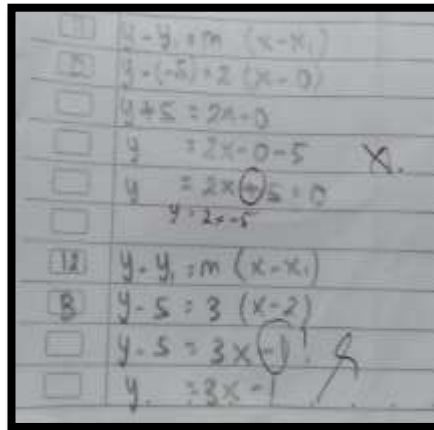 11 y-y₁=m (x-x₁)
D y-(-5)=2 (x-0)
y+5 =2x-0
y =2x-0-5 X.
y =2x+5=0
y=2x-5
12 y-y₁=m (x-x₁)
B y-5=3 (x-2)
y-5=3x-1
y. =3x-1